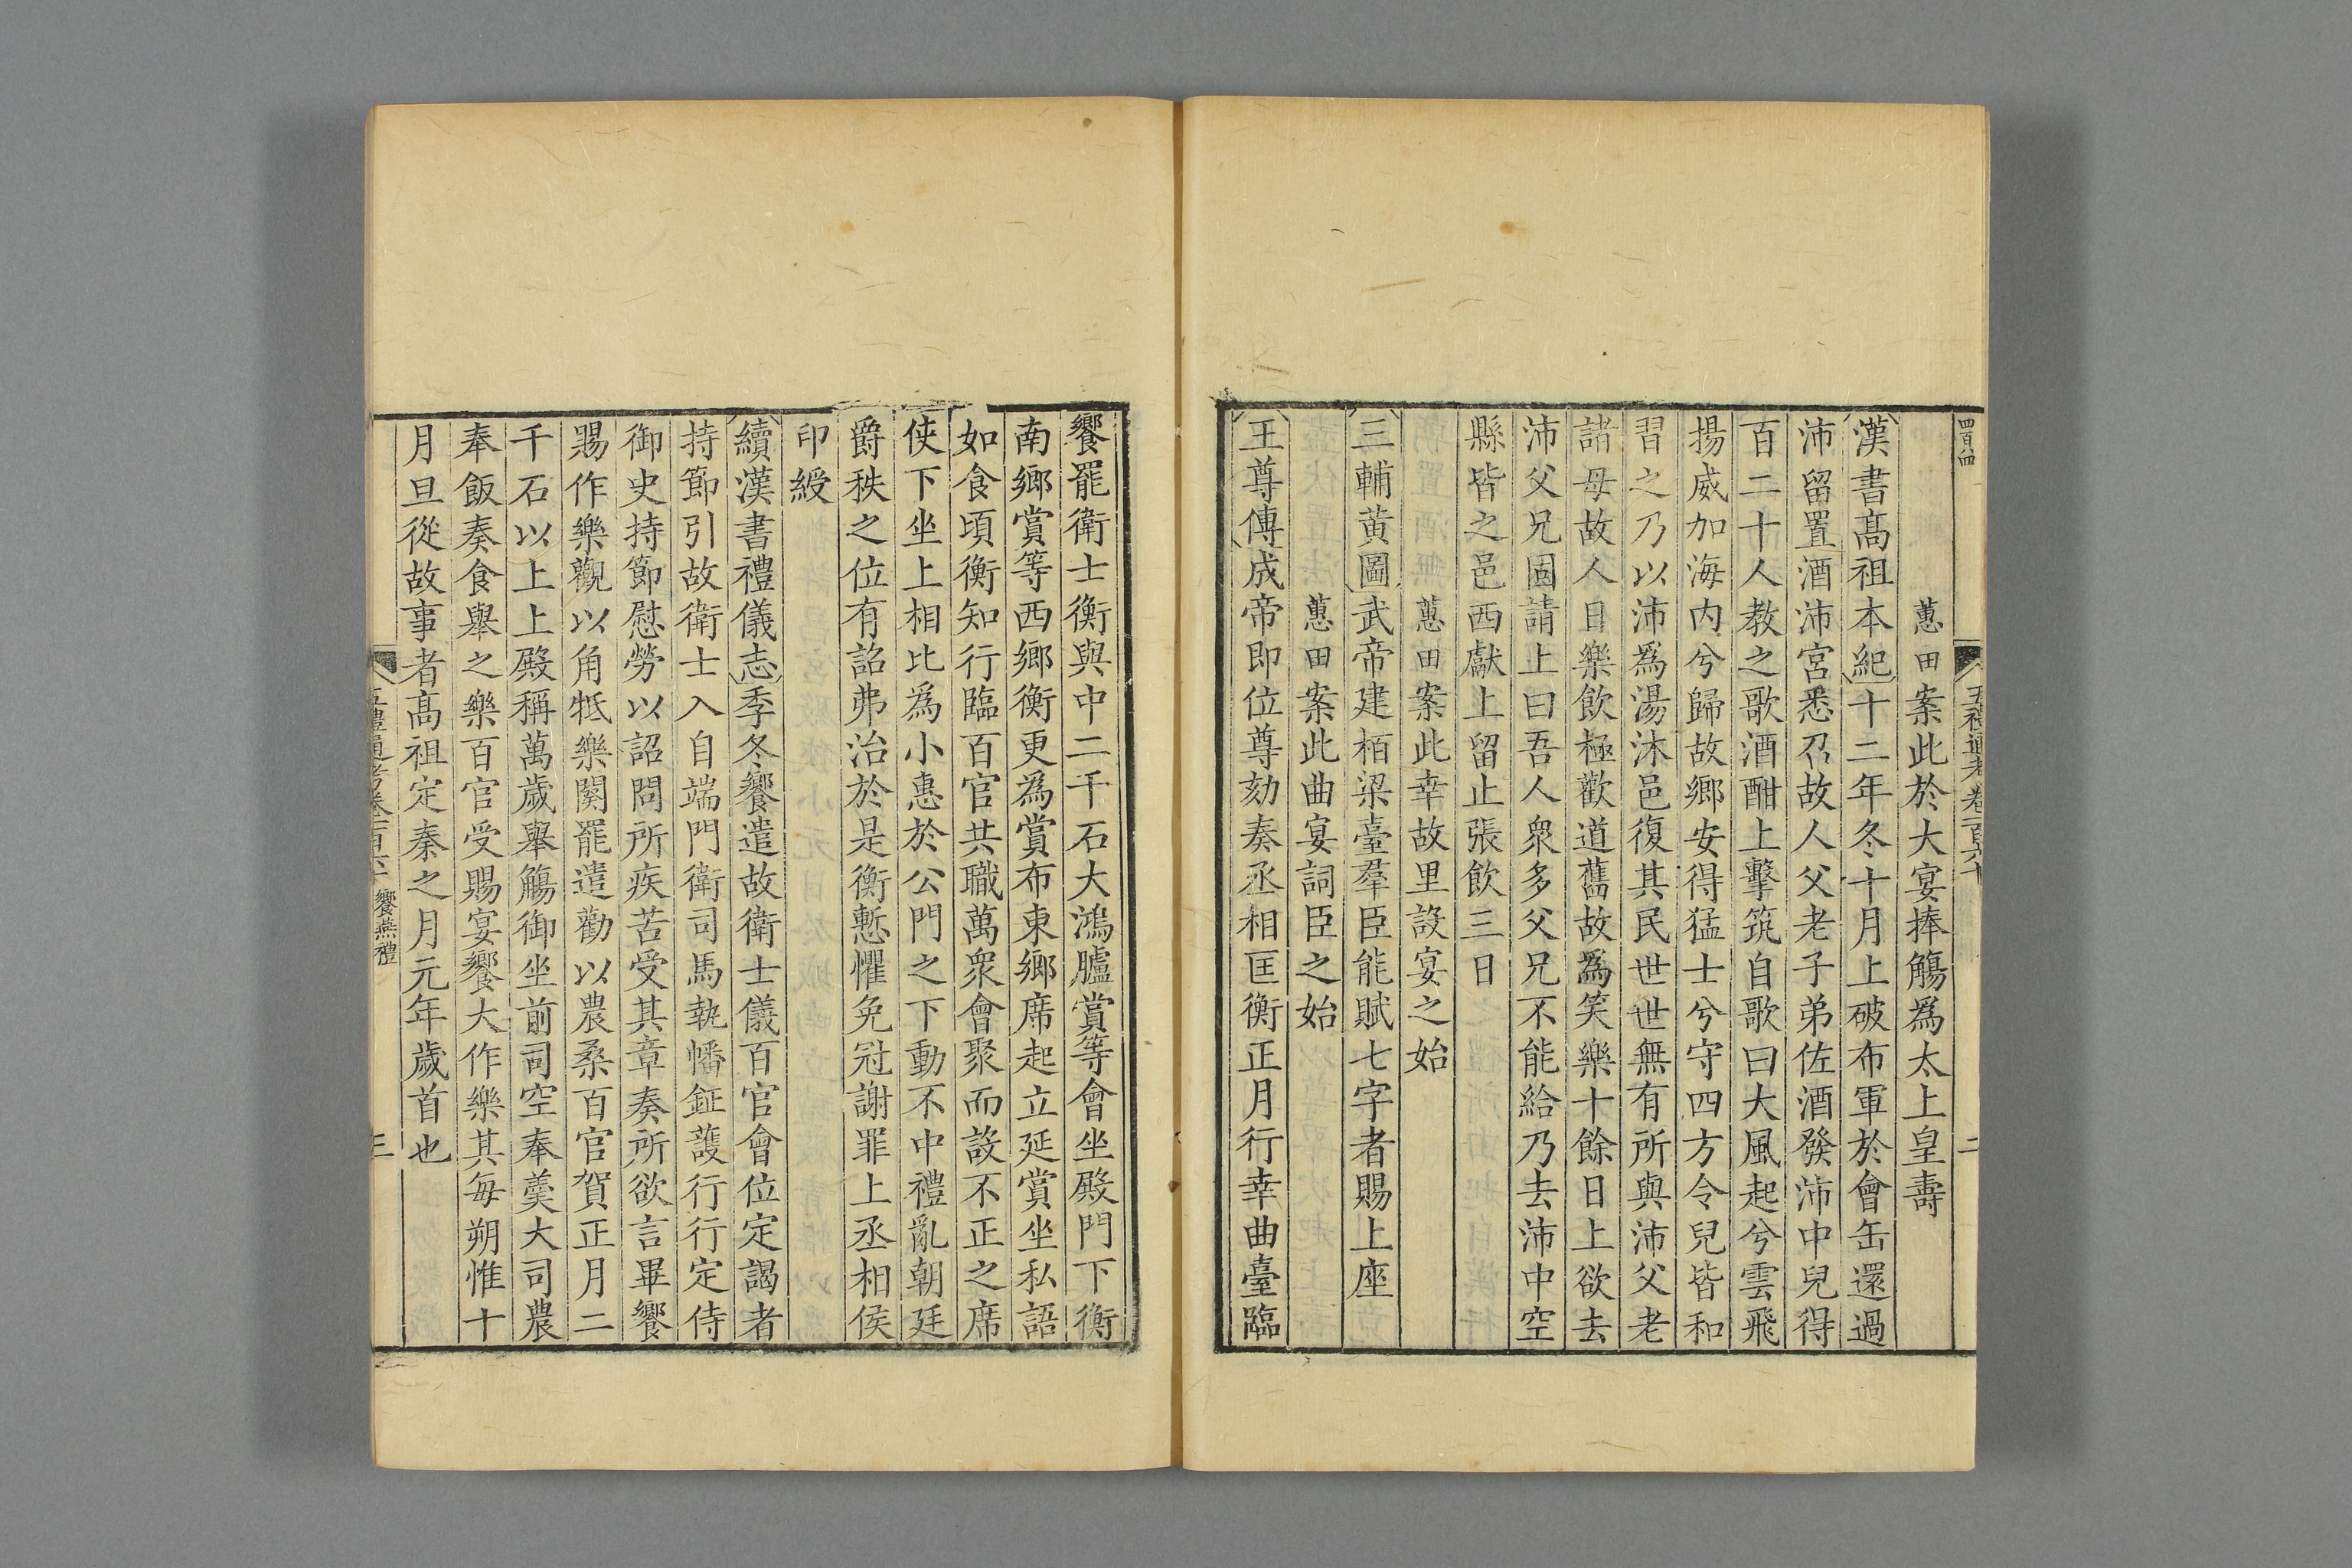 五禮通考卷一百六十
二
蕙田案此於大宴捧觴爲太上皇壽
漢書高祖本紀十二年冬十月上破布軍於會缶還過
沛留置酒沛宮悉召故人父老子弟佐酒發沛中兒得
百二十人教之歌酒酣上擊筑自歌曰大風起兮雲飛
揚威加海内兮歸故鄉安得猛士兮守四方令兒皆和
習之乃以沛爲湯沐邑復其民世世無有所與沛父老
諸母故人日樂飲極歡道舊故爲笑樂十餘日上欲去
沛父兄固請上曰吾人衆多父兄不能給乃去沛中空
縣皆之邑西獻上留止張飲三日
蕙田案此幸故里設宴之始
三輔黄圖武帝建栢梁臺羣臣能賦七字者賜上座
蕙田案此曲宴詞臣之始
王尊傳成帝即位尊劾奏丞相匡衡正月行幸曲臺臨
饗罷衛士衡與中二千石大鴻臚賞等會坐殿門下衡
南鄉賞等西鄉衡更爲賞布東鄉席起立延賞坐私語
如食頃衡知行臨百官共職萬衆會聚而設不正之席
使下坐上相比爲小惠於公門之下動不中禮亂朝廷
爵秩之位有詔弗治於是衡慙懼免冠謝罪上丞相侯
印綬
續漢書禮儀志季冬饗遣故衛士儀百官會位定謁者
持節引故衛士入自端門衛司馬執幡鉦護行行定侍
御史持節慰勞以詔問所疾苦受其章奏所欲言畢饗
賜作樂觀以角牴樂闋罷遣勸以農桑百官賀正月二
千石以上上殿稱萬歲舉觴御坐前司空奉羹大司農
奉飯奏食舉之樂百官受賜宴饗大作樂其每朔惟十
月旦從故事者高祖定秦之月元年歲首也
五禮通考卷一百六十 饗燕禮
三